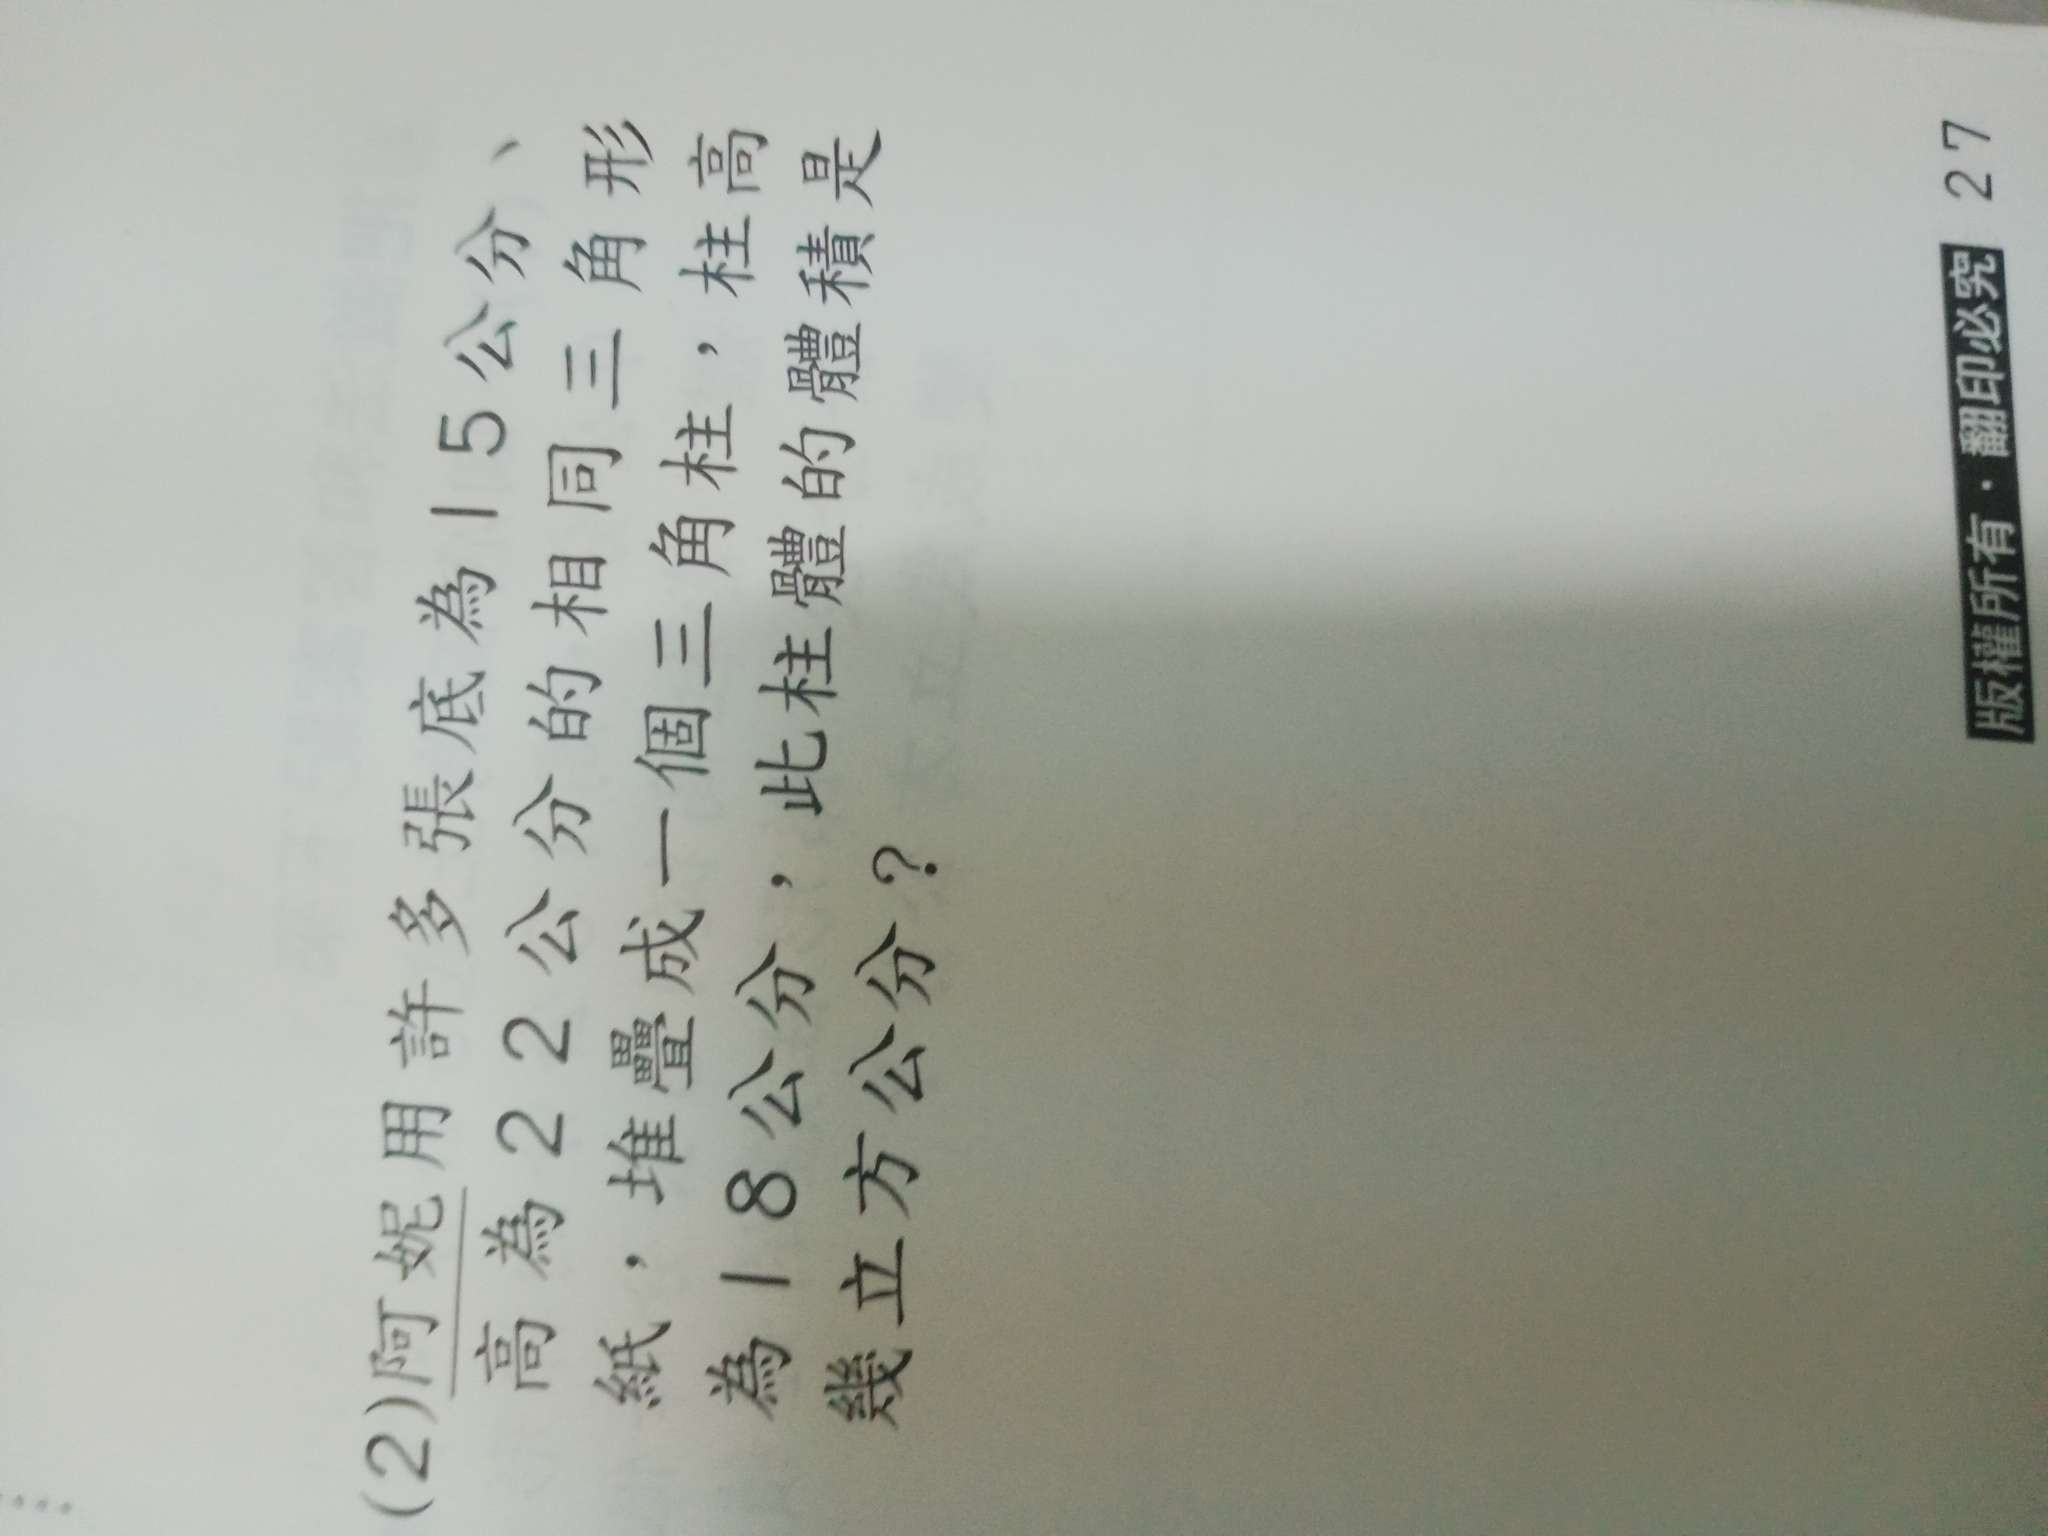 (2)阿妮用許多張底為15公分、
高為22公分的相同三角形
紙，堆疊成一個三角柱，柱高
為18公分，此柱體的體積是
幾立方公分？
版權所有·翻印必究 27